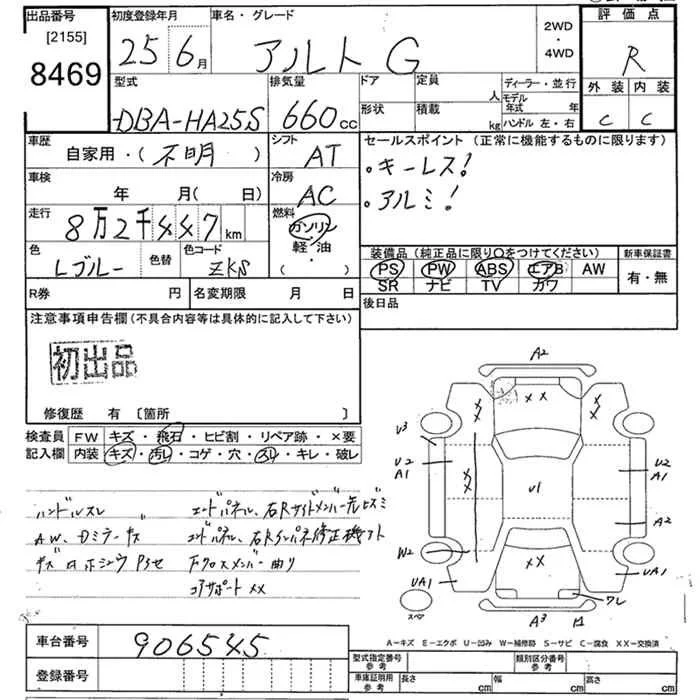 出品番号 初度登録年月 車名・グレード 評価点
[2155] 25 6月 アルト G 2WD・4WD R
8469
型式 排気量 ドア 定員 人 ディーラー・並行 外装 内装
DBA-HA25S 660cc 形状 積載 kg モデル年式 年 C C
ハンドル 左・右
車歴 シフト セールスポイント(正常に機能するものに限ります)
自家用・(不明) AT ・キーレス!
車検 冷房 ・アルミ!
年 月(日) AC
走行 燃料
8万2千447km ガソリン
軽・油
・( )
色 色替 色コード 装備品(純正品に限り○をつけてください) 新車保証書
Lブルー ZKS PS PW ABS エアB AW 有・無
SR ナビ TV カワ
R券 円 名変期限 月 日 後日品
注意事項申告欄(不具合内容等は具体的に記入して下さい)
初出品
修復歴 有〔箇所 〕
検査員 FW キズ・飛石・ヒビ割・リペア跡・×要
記入欄 内装 キズ・汚レ・コゲ・穴・スレ・キレ・破レ
ハンドルスレ エンドパネル、右Rサイドメンバー先ヒズミ
AW、
エンドパネル、右Rインパネ修正機アト
Fクロスメンバー曲り
コアサポートXX
A2
XX
XX
XX
V3
U2
A1
XX
U1
U2
A1
A2
W2
XX
UA1
UA1
ワレ
スペア
A3
A-キズ E-エクボ U-凹み W-補修跡 S-サビ C-腐食 XX-交換済
車台番号 906545
登録番号
型式指定番号 参考 類別区分番号 参考
車庫証明用 参考 長さ cm 幅 cm 高さ cm